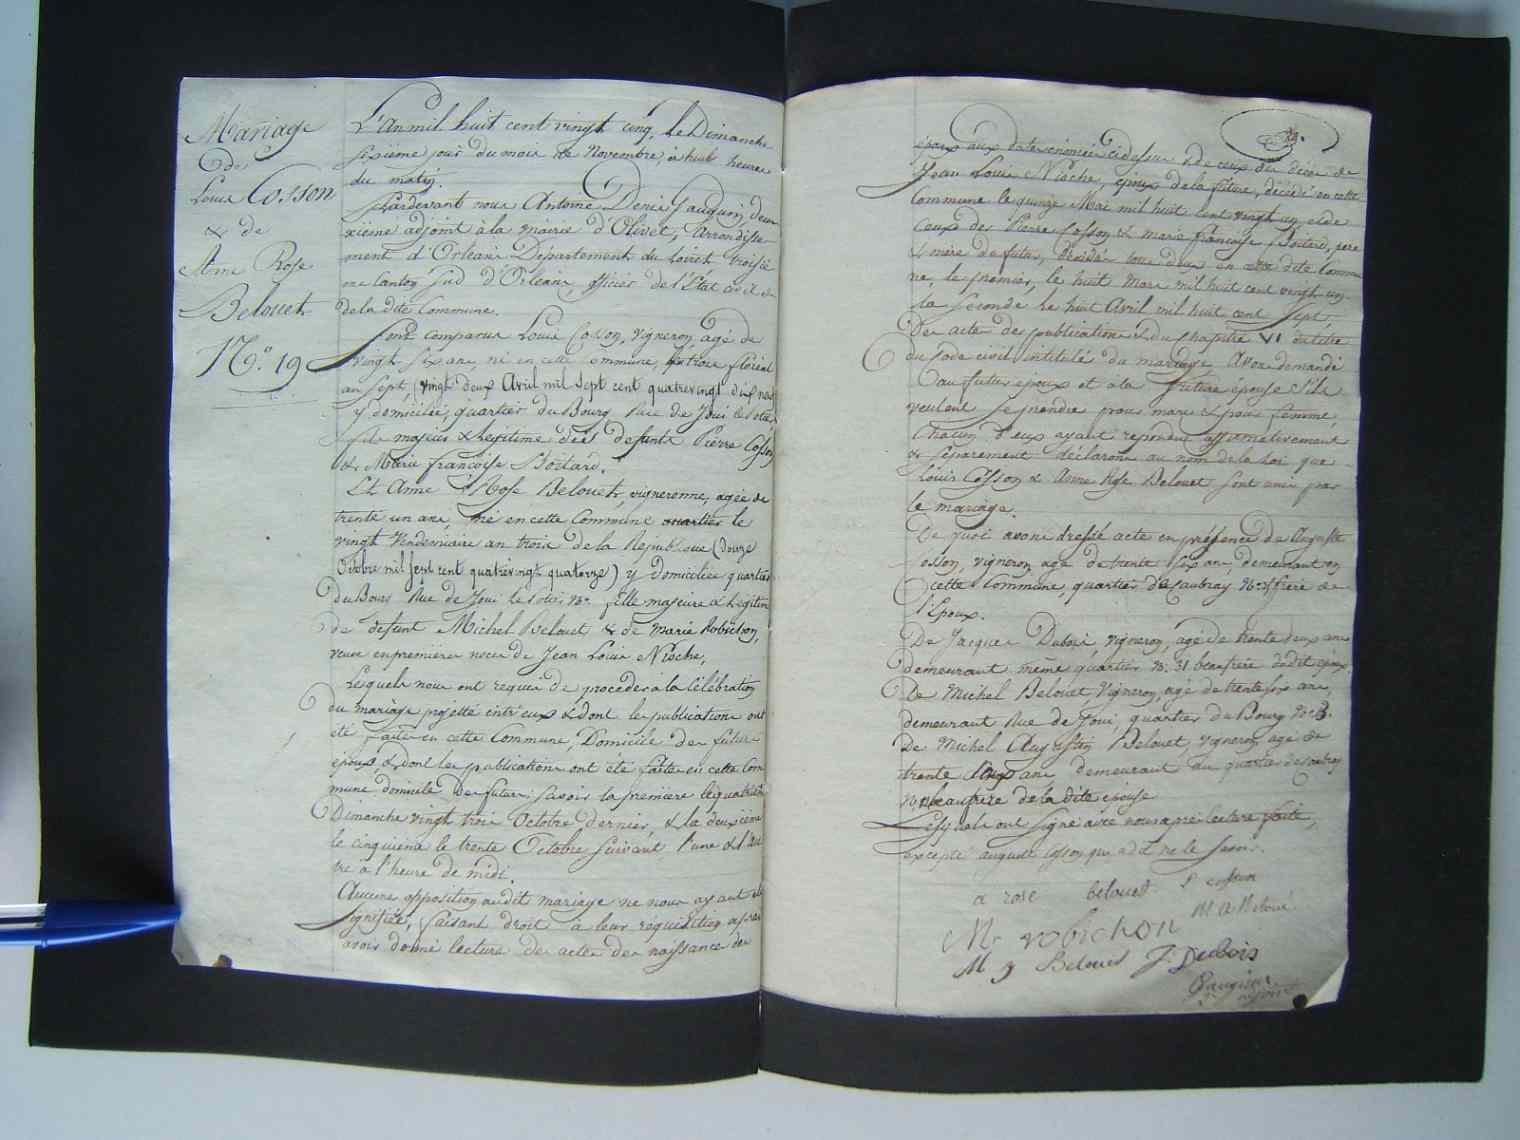 Mariage
de
Louis Cosson
& de
Anne Rose
Belouet
N.o 19
L'An mil huit cent vingt cinq, le Dimanche
sixième jour du mois de Novembre, à huit heures
du matin.
Pardevant nous Antoine Denis Gauguin, deu
xième adjoint à la mairie d'Olivet, arrondisse
ment d'Orléans Département du Loiret troisiè
me canton sud d'Orléans, officier de l'État civil
de la dite Commune.
Sont comparus Louis Cosson, vigneron, agé de
vingt six ans, né en cette commune, le trois floréal
an sept, (vingt deux Avril mil sept cent quatrevingt dix neuf
y domicilié, quartier du Bourg Rue de Joui
fils majeur & légitime des défunts Pierre Cosson
& Marie françoise Boitard.
Et Anne Rose Belouet, vigneronne, agée de
trente un ans, née en cette Commune quartier le
vingt Vendemiaire an trois de la République (douze
Octobre mil sept cent quatrevingt quatorze) y domiciliée quartier
du Bourg Rue de Joui fille majeure & légitime
de défunt Michel Belouet & de Marie Robichon,
veuve en premières noces de Jean Louis Nioche,
Lesquels nous ont requis de procéder à la Célébration
du mariage projetté entr'eux & dont les publications ont
été faites en cette Commune, Domicile des futurs
époux, & dont les publications ont été faites en cette Com
mune domicile des futurs savoir la première le quatrième
Dimanche vingt trois Octobre dernier, & la deuxième
le cinquième le trente Octobre suivant l'une & l'au
tre à l'heure de midi.
Aucune opposition audit mariage ne nous ayant été
signifiée, faisant droit à leur réquisition après
avoir donné lecture des actes de naissance des
époux aux dates énoncées cidessus & de ceux du décès de
Jean Louis Nioche, époux de la future, décédé en cette
Commune le quinze Mai mil huit cent vingt un et de
ceux des Pierre Cosson & marie françoise Boitard, père
& mère du futur, décédés tous deux en cette dite Commu
ne, le premier, le huit Mars mil huit cent vingt un
la seconde le huit Avril mil huit cent sept,
Des actes des publications & du chapitre VI du titre
du Code civil intitulé du mariage, Avons demandé
au futur époux et à la future épouse s'ils
veulent se prendre pour mari & pour femme,
Chacun d'eux ayant répondu affirmativement
& séparement déclarons au nom de la Loi que
Louis Cosson & Anne Rose Belouet sont unis par
le mariage.
De quoi avons dressé acte en présence de Auguste
Cosson, vigneron, agé de trente six ans, demeurant en
cette Commune, quartier de Caubray frère de
l'Epoux.
De Jacques Dubois, vigneron, agé de trente deux ans
demeurant même quartier N.o 31 beaufrère dudit époux.
De Michel Belouet, Vigneron, agé de trente six ans,
demeurant Rue de Joui, quartier du Bourg
De Michel Augustin Belouet, vigneron agé de
trente ans demeurant au quartier de Caubray
beaufrère de la dite épouse
Lesquels ont signé avec nous après lecture faite,
excepté auguste cosson qui a dit ne le savoir.
a rose belouet L cosson
M A Beloué
Me robichon
M J Belouet J. Dubois
Gauguin
adjoint